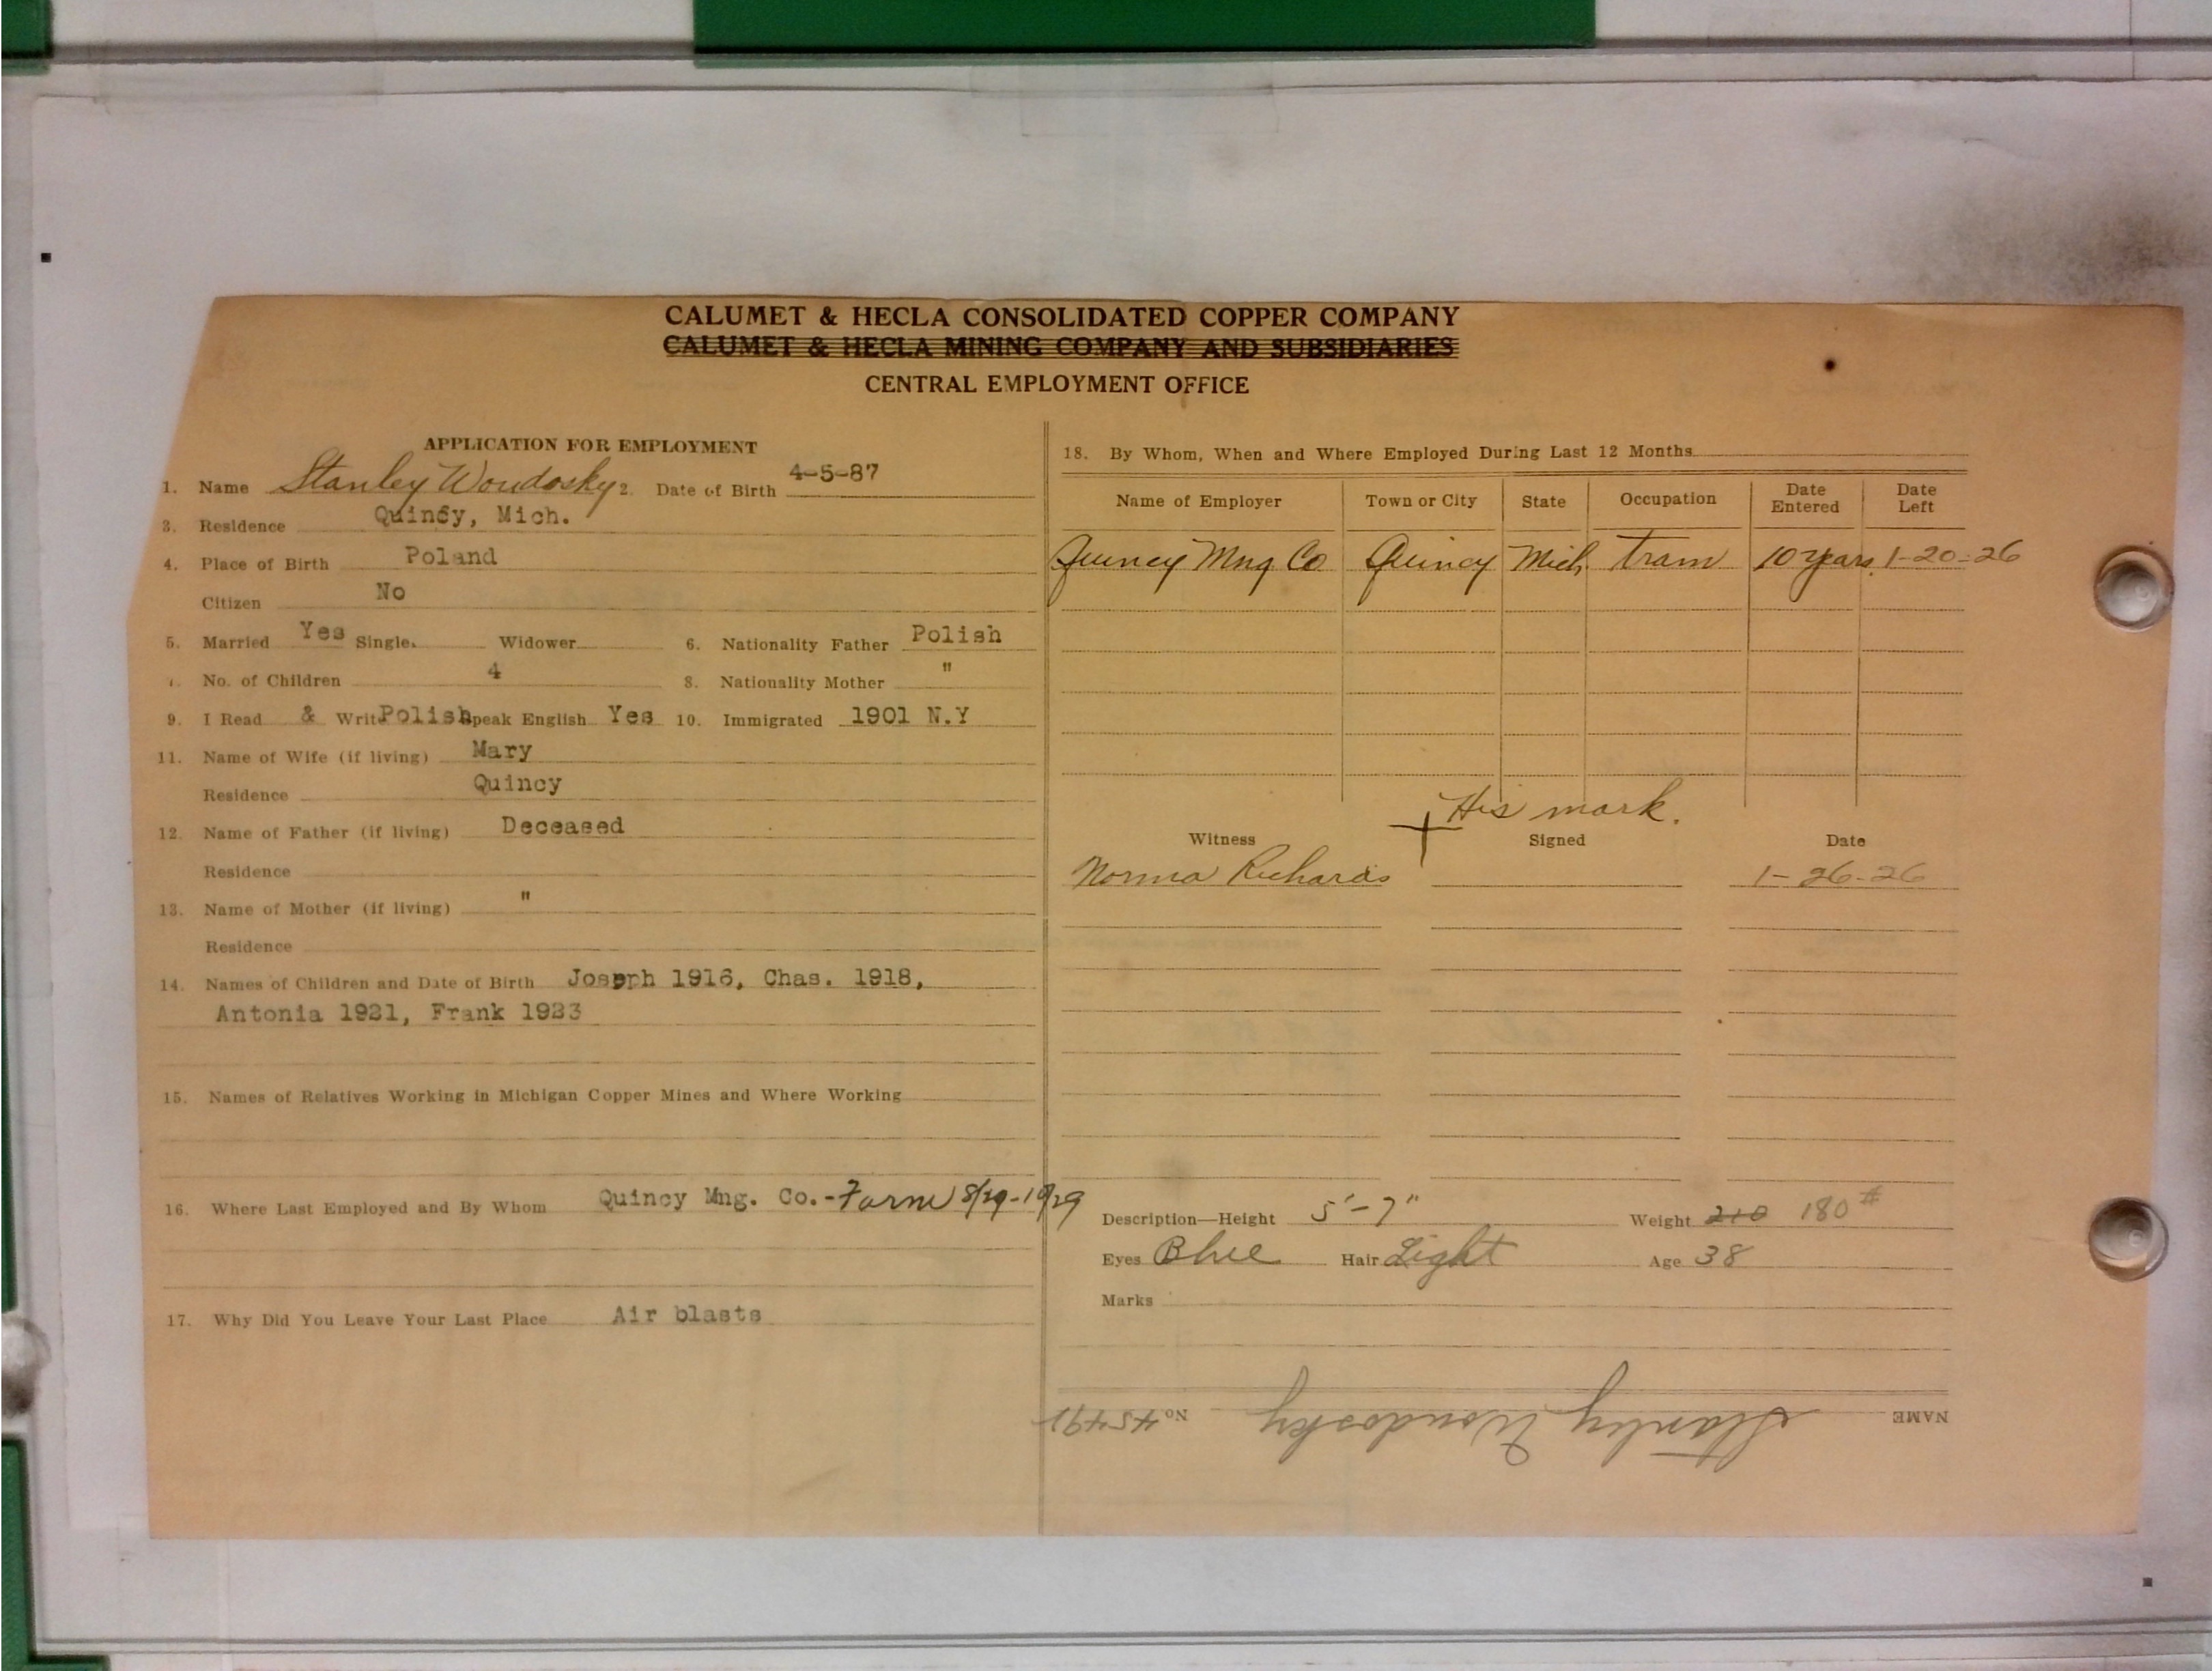 CALUMET & HECLA CONSOLIDATED COPPER COMPANY
CALUMET & HECLA MINING COMPANY AND SUBSIDIARIES
CENTRAL EMPLOYMENT OFFICE
APPLICATION FOR EMPLOYMENT
1. Name Stanley Woudosky 2. Date of Birth 4-5-87
3. Residence Quincy, Mich.
4. Place of Birth Poland
Citizen No
5. Married Yes Single Widower 6. Nationality Father Polish
No. of Children 4 8. Nationality Mother "
9. I Read & Writ Polish Speak English Yes 10. Immigrated 1901 N.Y
11. Name of Wife (if living) Mary
Residence Quincy
12. Name of Father (if living) Deceased
Residence
13. Name of Mother (if living) "
Residence
14. Names of Children and Date of Birth Joseph 1916, Chas. 1918,
Antonia 1921, Frank 1923
15. Names of Relatives Working in Michigan Copper Mines and Where Working
16. Where Last Employed and By Whom Quincy Mng. Co.-Farm 8/29-10/29
17. Why Did You Leave Your Last Place Air blasts
18. By Whom, When and Where Employed During Last 12 Months
Name of Employer Town or City State Occupation Date Entered Date Left
Quincy Mng Co Quincy Mich. tram 10 years 1-20-26
His mark.
Witness Signed Date
Norma Richards 1-26-26
Description—Height 5'-7" Weight 210 180#
Eyes Blue Hair Light Age 38
Marks
NAME Stanley Woudosky No 45491